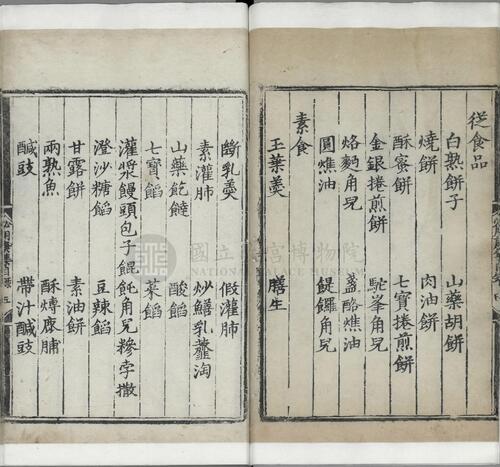 從食品
白熟餅子 山藥胡餅
燒餅 肉油餅
酥蜜餅 七寶捲煎餅
金銀捲煎餅 駝峯角兒
烙麪角兒 䭔酪燋油
圓燋油 餛饠角兒
素食
玉葉羮 膳生
斷乳羮 假灌肺
素灌肺 炒鱔乳虀淘
山藥飥饒 酸餡
七寶餡 菜餡
灌漿饅頭包子餛飩角兒糝孛撒
澄沙糖餡 豆辣餡
甘露餅 素油餅
兩熟魚 酥煿鹿脯
醎豉 帶汁醎豉
國立故宮博物院
NATIONAL PALACE MUSEUM